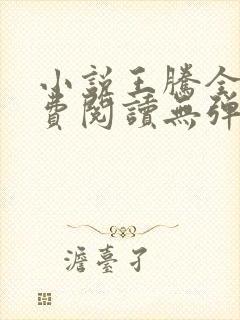 小説王騰全
費閱讀無彈
澹臺孑